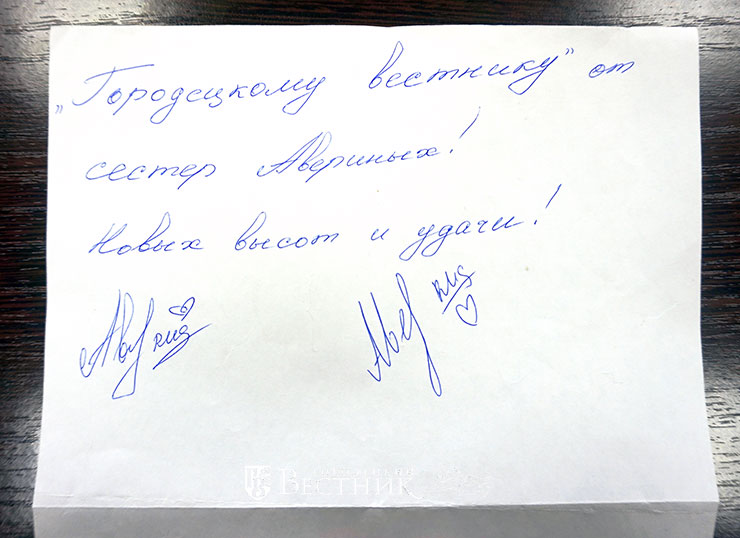 „Городецкому вестнику" от
сестер Авериных!
Новых высот и удачи!
ГОРОДЕЦКИЙ
ВЕСТНИК